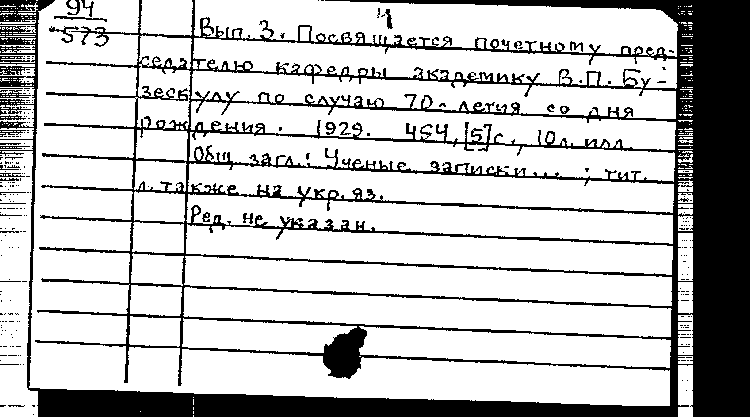 4
94
573
Вып. 3. Посвящается почетному пред-
седателю кафедры академику В.П. Бу-
зескулу по случаю 70-летия со дня
рождения. 1929. 464, [5] с., 10 л. илл.
Общ. загл.: Ученые записки... ; тит.
л. также на укр. яз.
Ред. не указан.